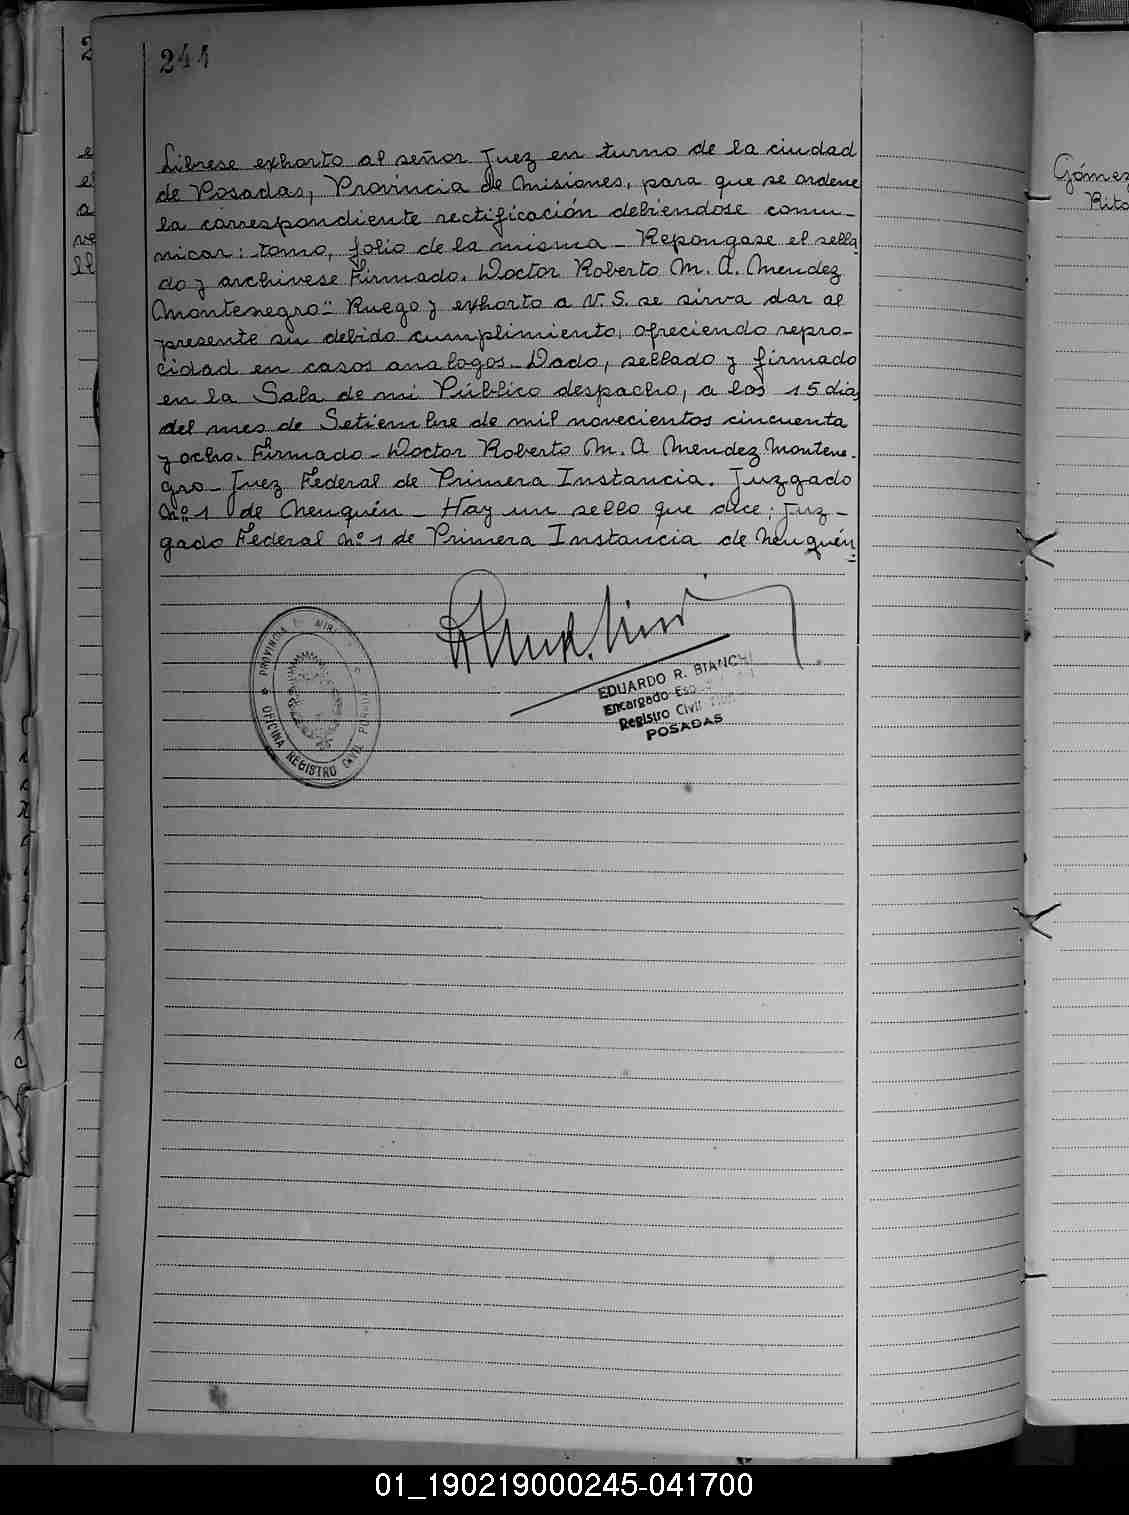 244
Líbrese exhorto al señor Juez en turno de la ciudad
de Posadas, Provincia de Misiones, para que se ordene
la correspondiente rectificación debiendose comu-
nicar: tomo, folio de la misma - Repongase el sella
do y archivese Firmado. Doctor Roberto M. A. Mendez
Montenegro:- Ruego y exhorto a V. S. se sirva dar al
presente su debido cumplimiento, ofreciendo repro-
cidad en casos analogos - Dado, sellado y firmado
en la Sala de mi Público despacho, a los 15 dias
del mes de Setiembre de mil novecientos cincuenta
y ocho. Firmado - Doctor Roberto M. A Mendez Montene-
gro - Juez Federal de Primera Instancia. Juzgado
Nº 1 de Neuquén - Hay un sello que dice: Juz-
gado Federal Nº 1 de Primera Instancia de Neuquén:
PROVINCIA
OFICINA REGISTRO CIVIL
EDUARDO R. BIANCHI
Encargado
Registro Civil
POSADAS
Gómez
Rita
01_190219000245-041700